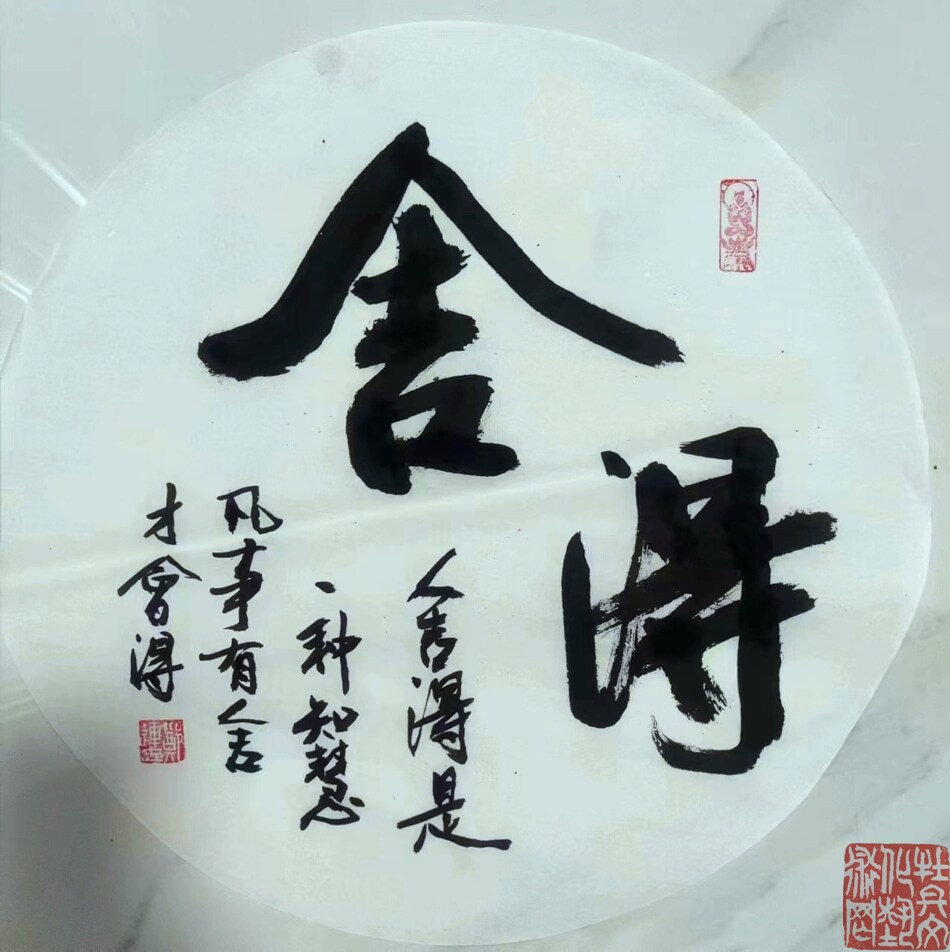 舍得
舍得是
一种知慧
凡事有舍
才會得